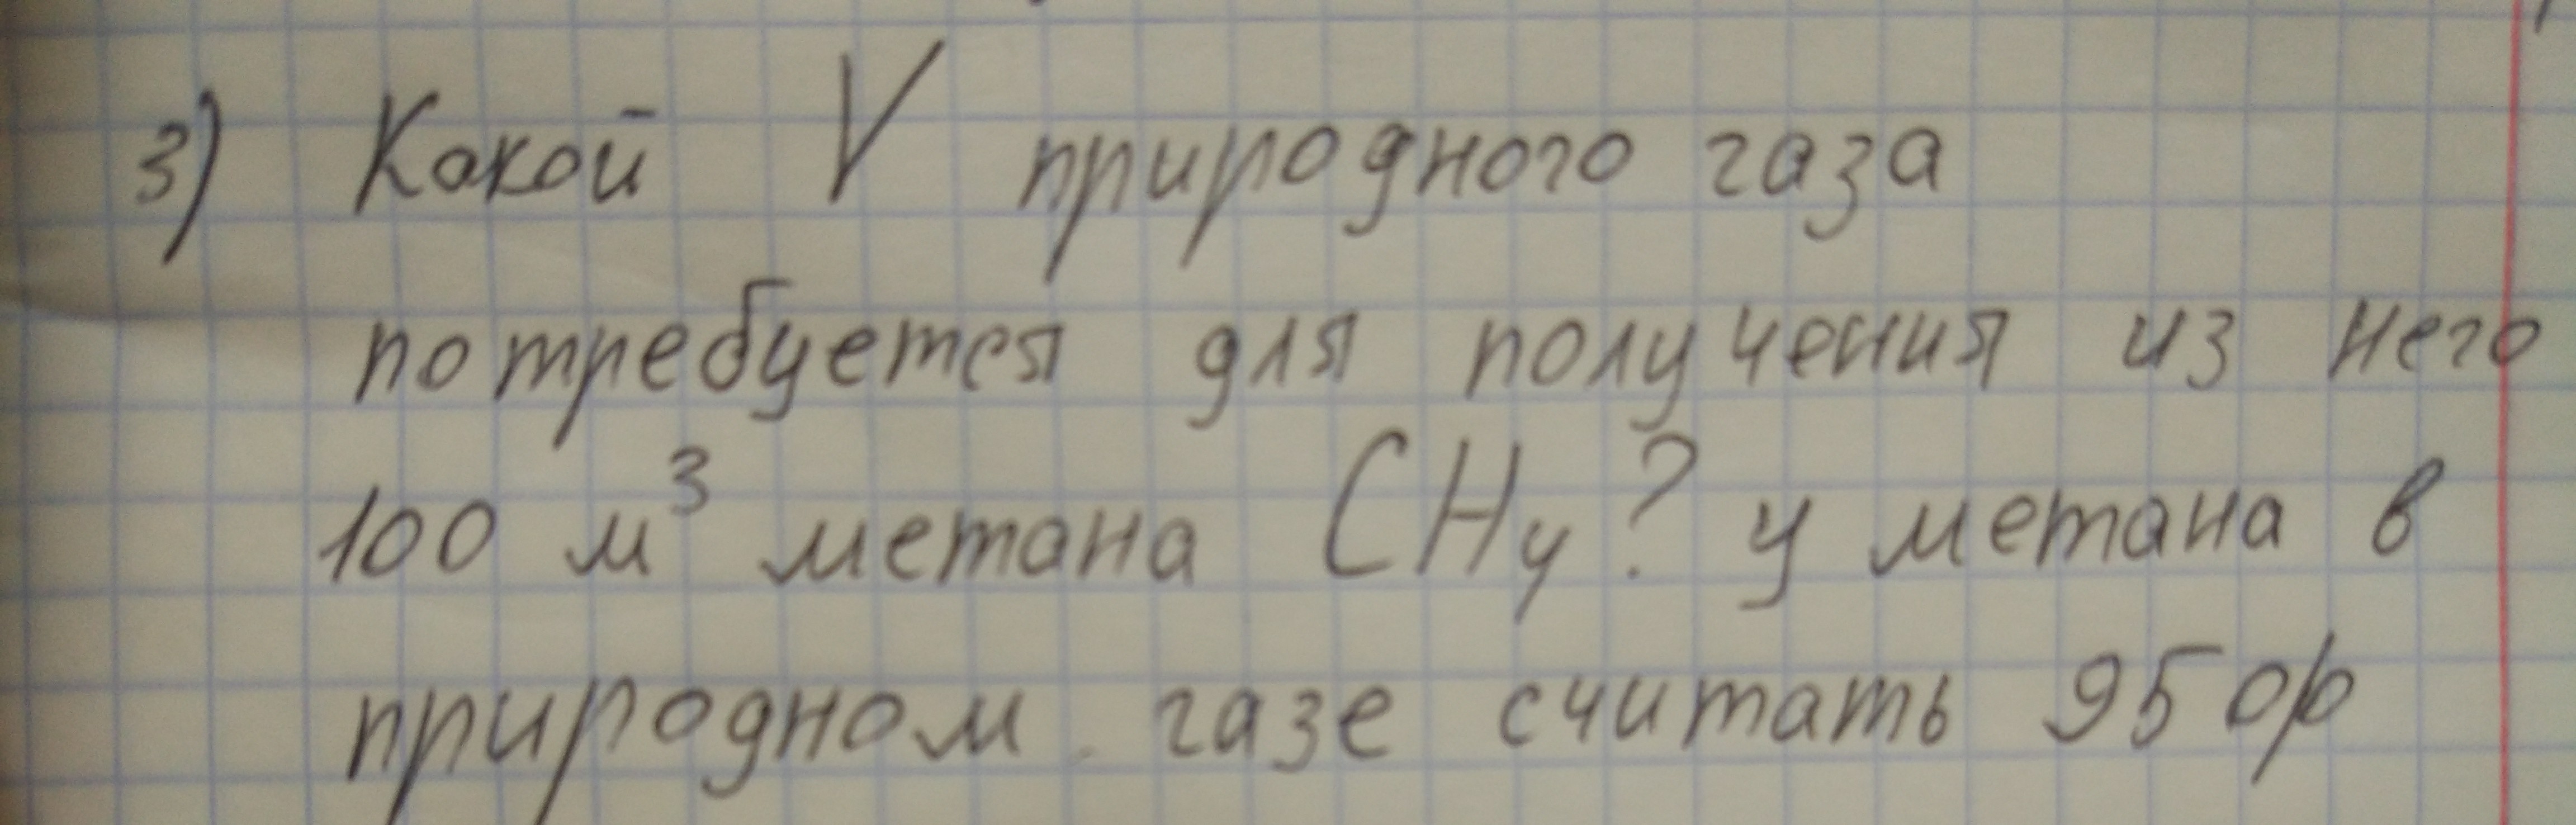 3) Какой V природного газа
потребуется для получения из него
100 м³ метана CH₄? у метана в
природном газе считать 95%